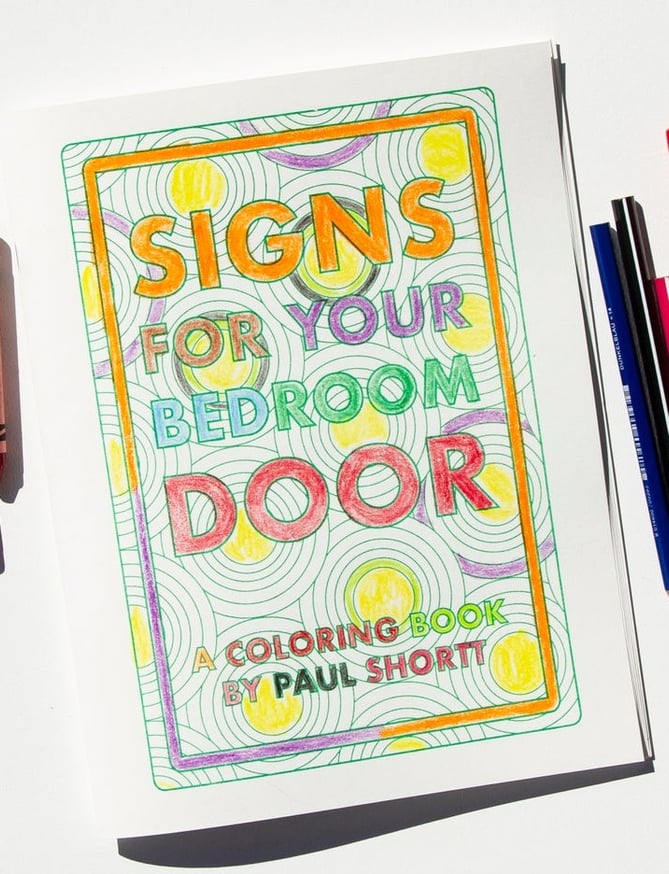 SIGNS
FOR YOUR
BEDROOM
DOOR
A COLORING BOOK
BY PAUL SHORTT
DUNKELBLAU